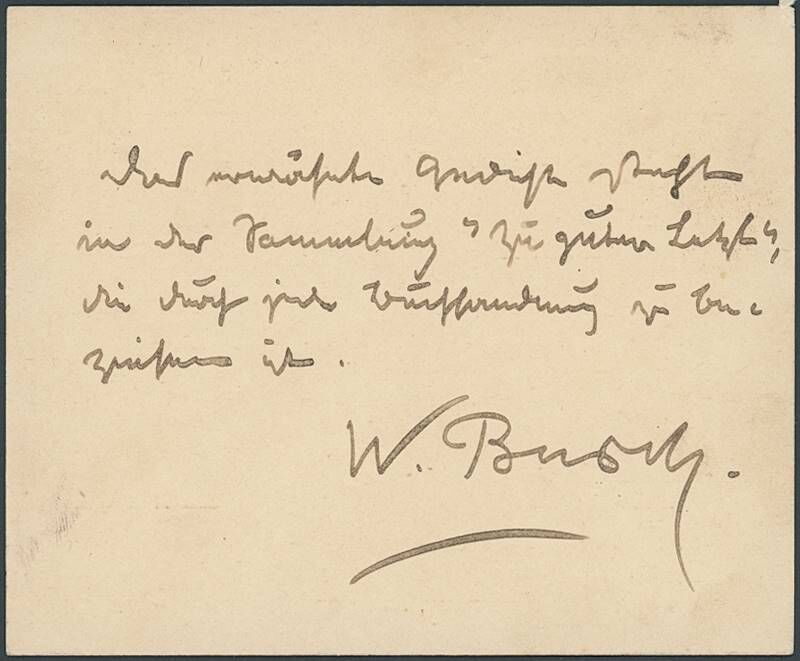 Das erwähnte Gedicht steht
in der Sammlung "Zu guter Letzt",
die durch jede Buchhandlung zu be-
ziehen ist.
W. Busch.